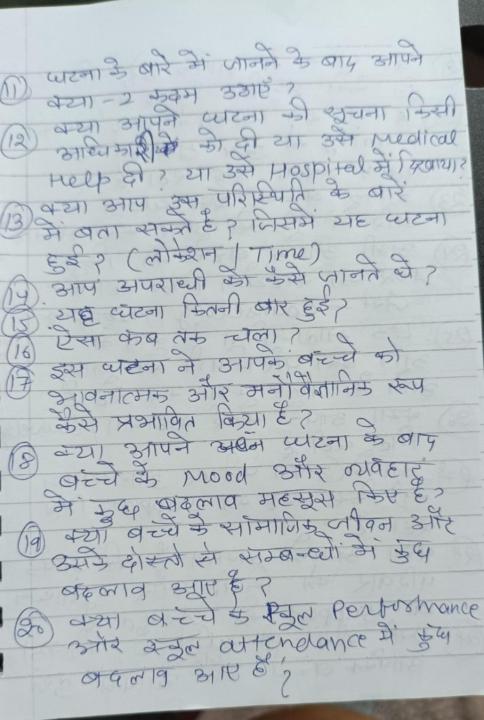 ⑪ घटना के बारे में जानने के बाद आपने
क्या-2 कदम उठाएँ ?
⑫ क्या आपने घटना की सूचना किसी
अधिकारी को दी या उसे Medical
Help दी ? या उसे Hospital में दिखाया?
⑬ क्या आप उस परिस्थिति के बारे
में बता सकते है ? जिसमें यह घटना
हुई ? (लोकेशन / Time)
⑭ आप अपराधी को कैसे जानते थे ?
⑮ यह घटना कितनी बार हुई ?
⑯ ऐसा कब तक चला ?
⑰ इस घटना ने आपके बच्चे को
भावनात्मक और मनोवैज्ञानिक रूप
कैसे प्रभावित किया है ?
⑱ क्या आपने घटना के बाद
बच्चे के Mood और व्यवहार
में कुछ बदलाव महसूस किए है ?
⑲ क्या बच्चे के सामाजिक जीवन और
उसके दोस्तो से सम्बन्धों में कुछ
बदलाव आए है ?
⑳ क्या बच्चे के स्कूल Performance
और स्कूल attendance में कुछ
बदलाव आए हैं ?